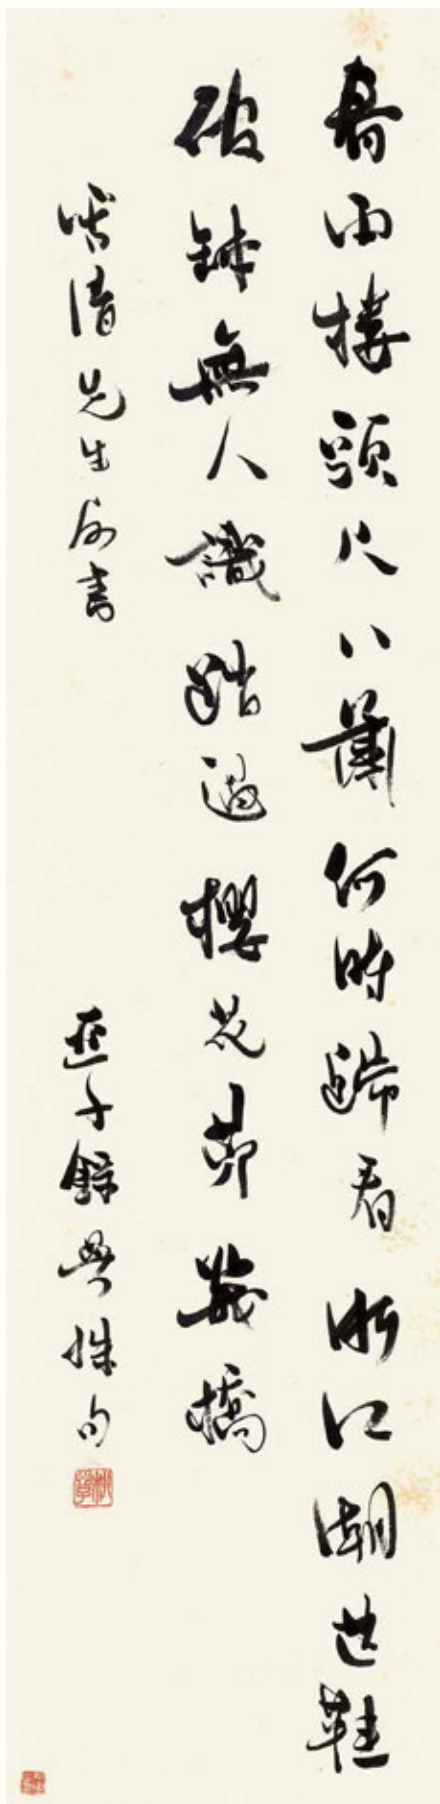 春雨樓頭尺八簫何時歸看浙江潮芒鞋
破鉢無人識踏過櫻花第幾橋
清先生 書 亞子錄曼殊句